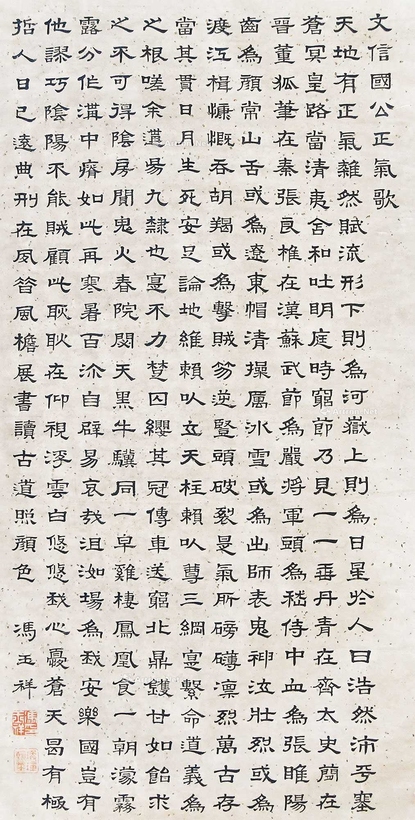 文信國公正氣歌
天地有正氣雜然賦流形下則為河嶽上則為日星於人曰浩然沛乎塞
蒼冥皇路當清夷舍和吐明庭時窮節乃見一一垂丹青在齊太史簡在
晉董狐筆在秦張良椎在漢蘇武節為嚴將軍頭為嵇侍中血為張睢陽
齒為顏常山舌或為遼東帽清操厲冰雪或為出師表鬼神泣壯烈或為
渡江楫慷慨吞胡羯或為擊賊笏逆豎頭破裂是氣所磅礴凜烈萬古存
當其貫日月生死安足論地維賴以立天柱賴以尊三綱寔繫命道義為
之根嗟余遘昜九隸也寔不力楚囚纓其冠傳車送窮北鼎鑊甘如飴求
之不可得陰房闃鬼火春院閟天黑牛驥同一皁雞棲鳳凰食一朝濛霧
露分作溝中瘠如此再寒暑百沴自辟易哀哉沮洳場為我安樂國豈有
他謬巧陰陽不能賊顧此耿耿在仰視浮雲白悠悠我心憂蒼天曷有極
哲人日已遠典刑在夙昔風檐展書讀古道照顏色 馮玉祥